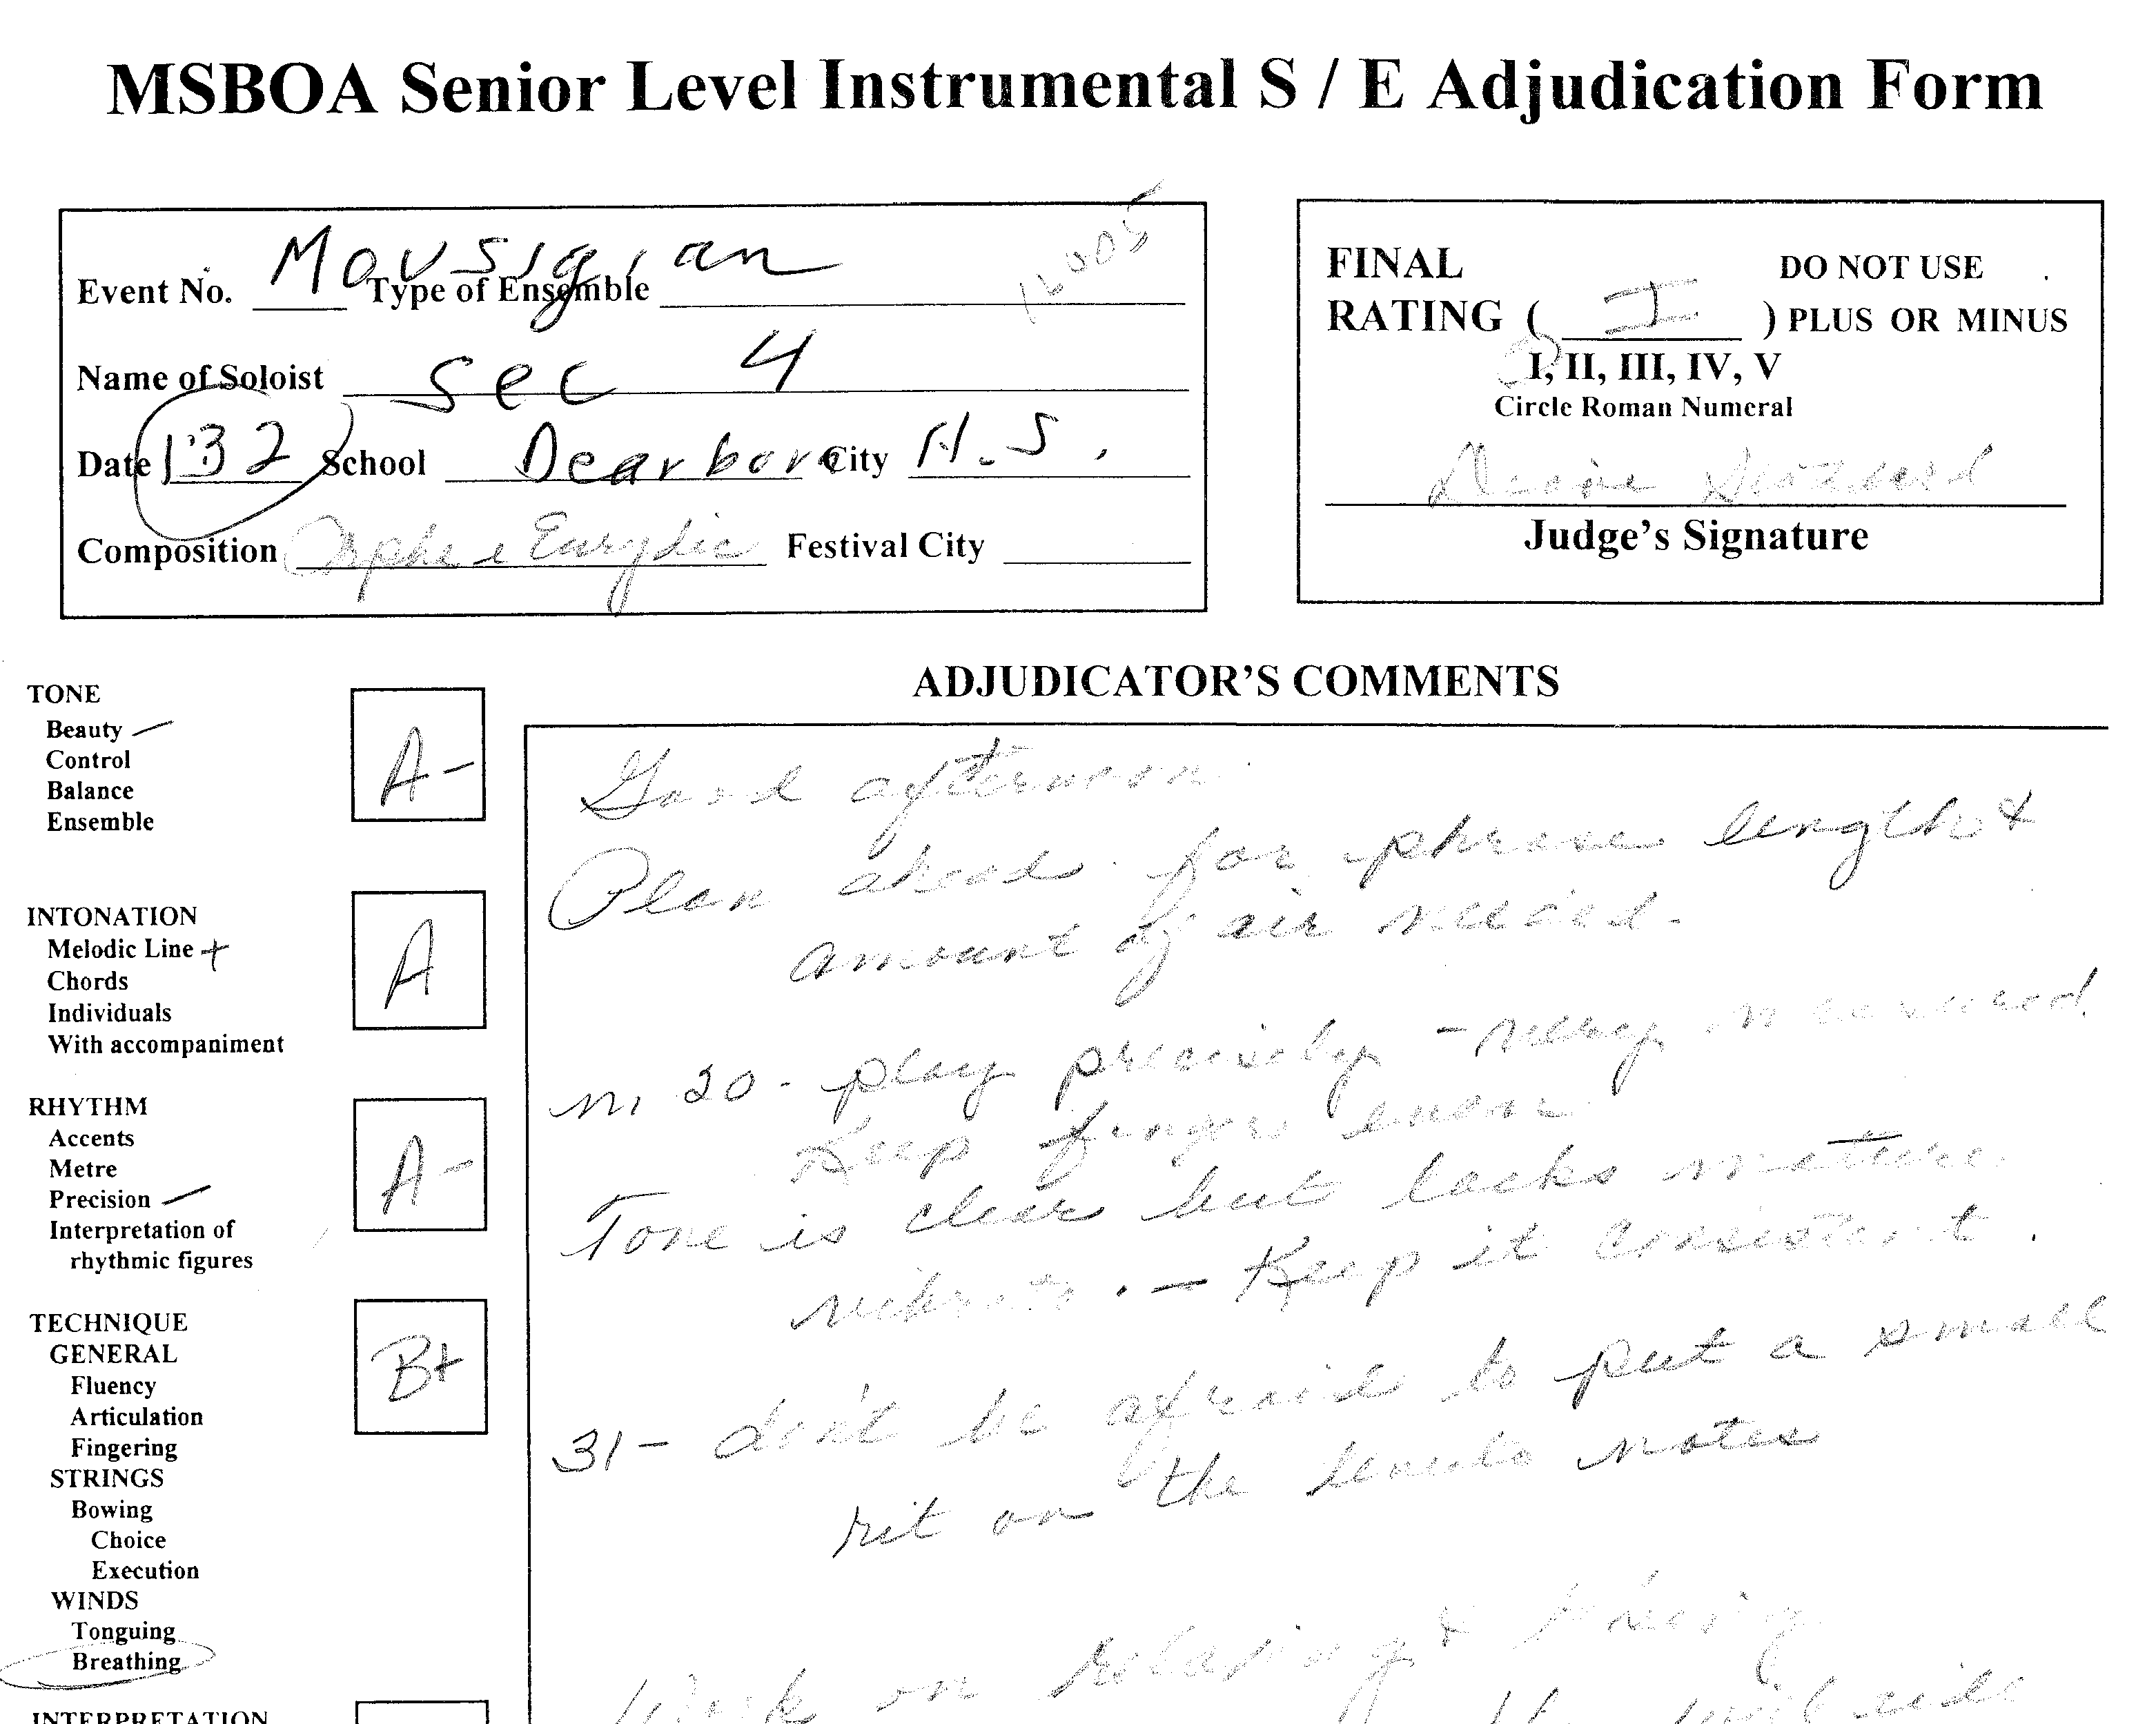 MSBOA Senior Level Instrumental S / E Adjudication Form
Event No. Type of Ensemble Mousigian
Name of Soloist Sec 4
Date 1:32 School Dearborn City H.S.
Composition Eurydic Festival City
FINAL
RATING ( I ) DO NOT USE PLUS OR MINUS
I, II, III, IV, V
Circle Roman Numeral
Judge's Signature
TONE A-
Beauty –
Control
Balance
Ensemble
INTONATION A
Melodic Line +
Chords
Individuals
With accompaniment
RHYTHM A-
Accents
Metre
Precision –
Interpretation of
rhythmic figures
TECHNIQUE B+
GENERAL
Fluency
Articulation
Fingering
STRINGS
Bowing
Choice
Execution
WINDS
Tonguing
Breathing
INTERPRETATION
ADJUDICATOR'S COMMENTS
Good afternoon
Plan ahead for phrase length &
amount of air needed.
m. 20 - play precisely -
Keep fingers
Tone is clear but lacks mature
vibrato. - Keep it consistent.
31 - don't be afraid to put a small
rit on the tenuto notes
Work on relaxing &
will